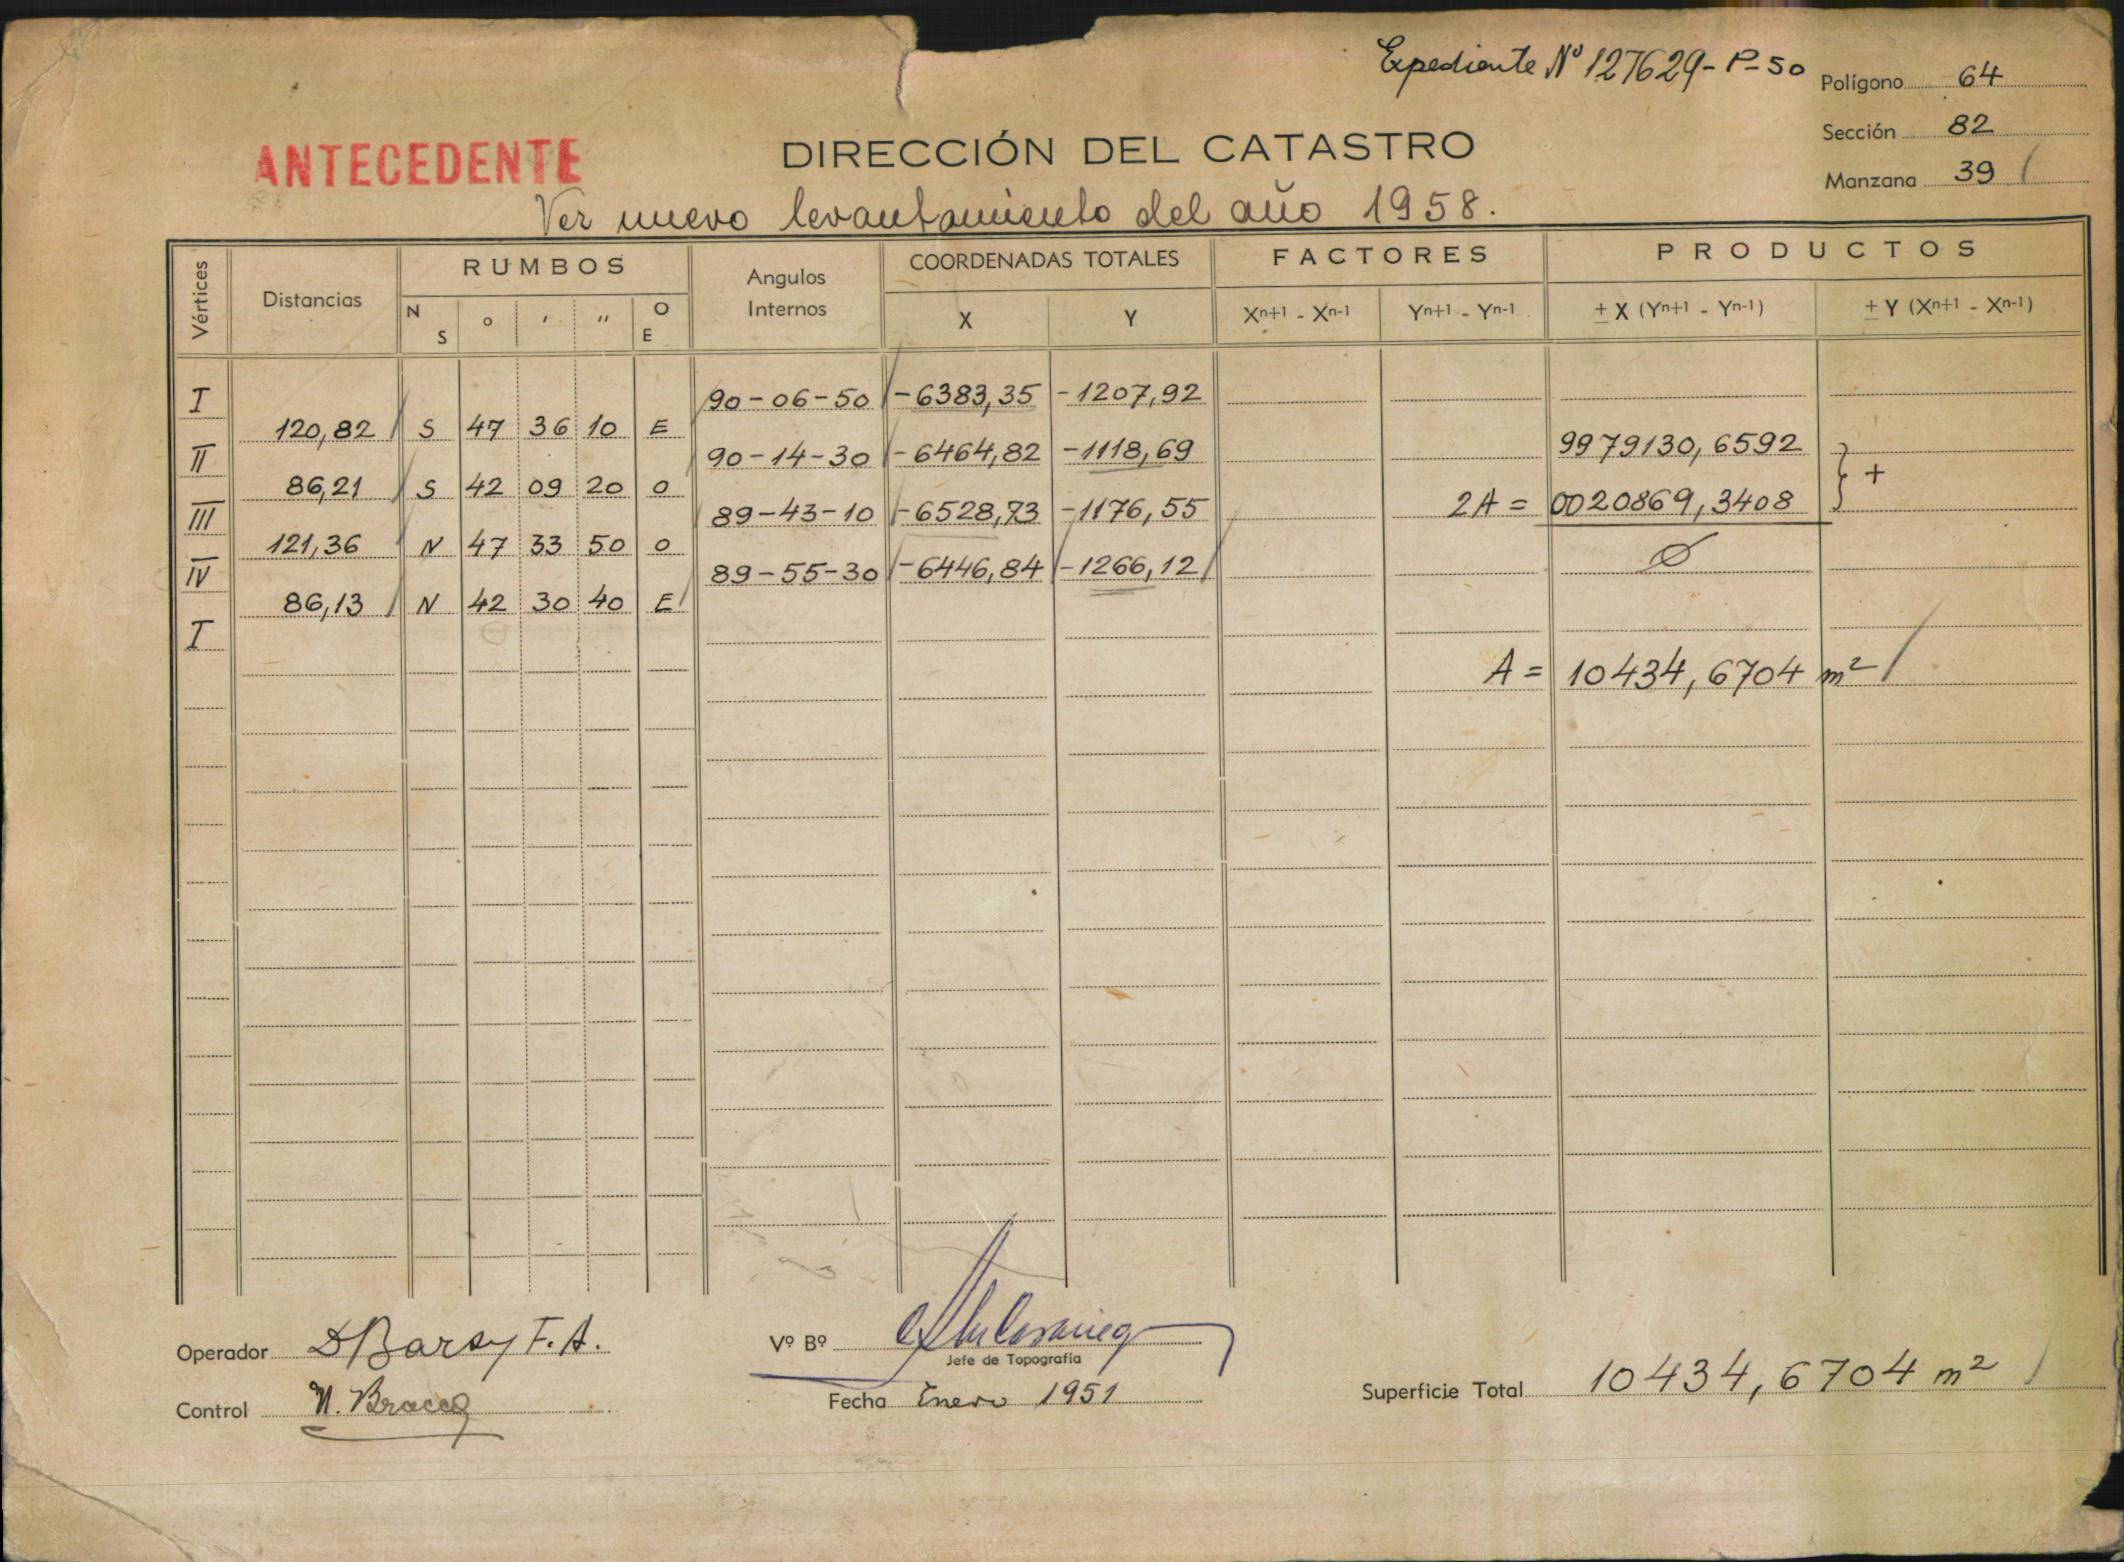 Expediente Nº 127629-P-50
Polígono 64
Sección 82
Manzana 39
ANTECEDENTE
DIRECCIÓN DEL CATASTRO
Ver nuevo levantamiento del año 1958.
Vértices Distancias RUMBOS Angulos Internos COORDENADAS TOTALES FACTORES PRODUCTOS
N S ° ' " O E X Y Xn+1 - Xn-1 Yn+1 - Yn-1 ± X (Yn+1 - Yn-1) ± Y (Xn+1 - Xn-1)
I 90-06-50 -6383,35 -1207,92
120,82 S 47 36 10 E
II 90-14-30 -6464,82 -1118,69 9979130,6592
86,21 S 42 09 20 O } +
III 89-43-10 -6528,73 -1176,55 2A = 0020869,3408
121,36 N 47 33 50 O Ø
IV 89-55-30 -6446,84 -1266,12
86,13 N 42 30 40 E
I
A = 10434,6704 m²
Operador F. A.
Vº Bº
Jefe de Topografía
Control
Fecha Enero 1951
Superficie Total 10434,6704 m²